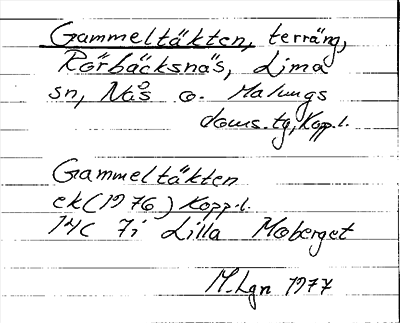 Gammeltäkten, terräng,
Rörbäcksnäs, Lima
sn, Nås o. Malungs
doms.tg, Kopp.l.
Gammeltäkten
ek (1976) Kopp.l.
14C 7i Lilla Moberget
M.Lgn 1977